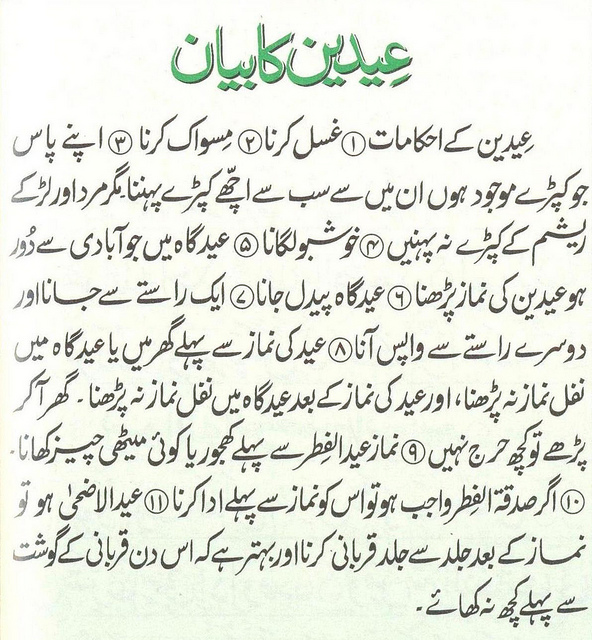 عیدین کا بیان
عیدین کے احکامات ① غسل کرنا ② مسواک کرنا ③ اپنے پاس
جو کپڑے موجود ہوں ان میں سے سب سے اچھّے کپڑے پہننا مگر مرد اور لڑکے
ریشم کے کپڑے نہ پہنیں ④ خوشبو لگانا ⑤ عید گاہ میں جو آبادی سے دُور
ہو عیدین کی نماز پڑھنا ⑥ عید گاہ پیدل جانا ⑦ ایک راستے سے جانا اور
دوسرے راستے سے واپس آنا ⑧ عید کی نماز سے پہلے گھر میں یا عید گاہ میں
نفل نماز نہ پڑھنا، اور عید کی نماز کے بعد عید گاہ میں نفل نماز نہ پڑھنا۔ گھر آ کر
پڑھے تو کچھ حرج نہیں ⑨ نماز عید الفِطر سے پہلے کھجور یا کوئی میٹھی چیز کھانا۔
⑩ اگر صدقۃ الفِطر واجب ہو تو اس کو نماز سے پہلے ادا کرنا ⑪ عید الاضحیٰ ہو تو
نماز کے بعد جلد سے جلد قربانی کرنا اور بہتر ہے کہ اس دن قربانی کے گوشت
سے پہلے کچھ نہ کھائے۔